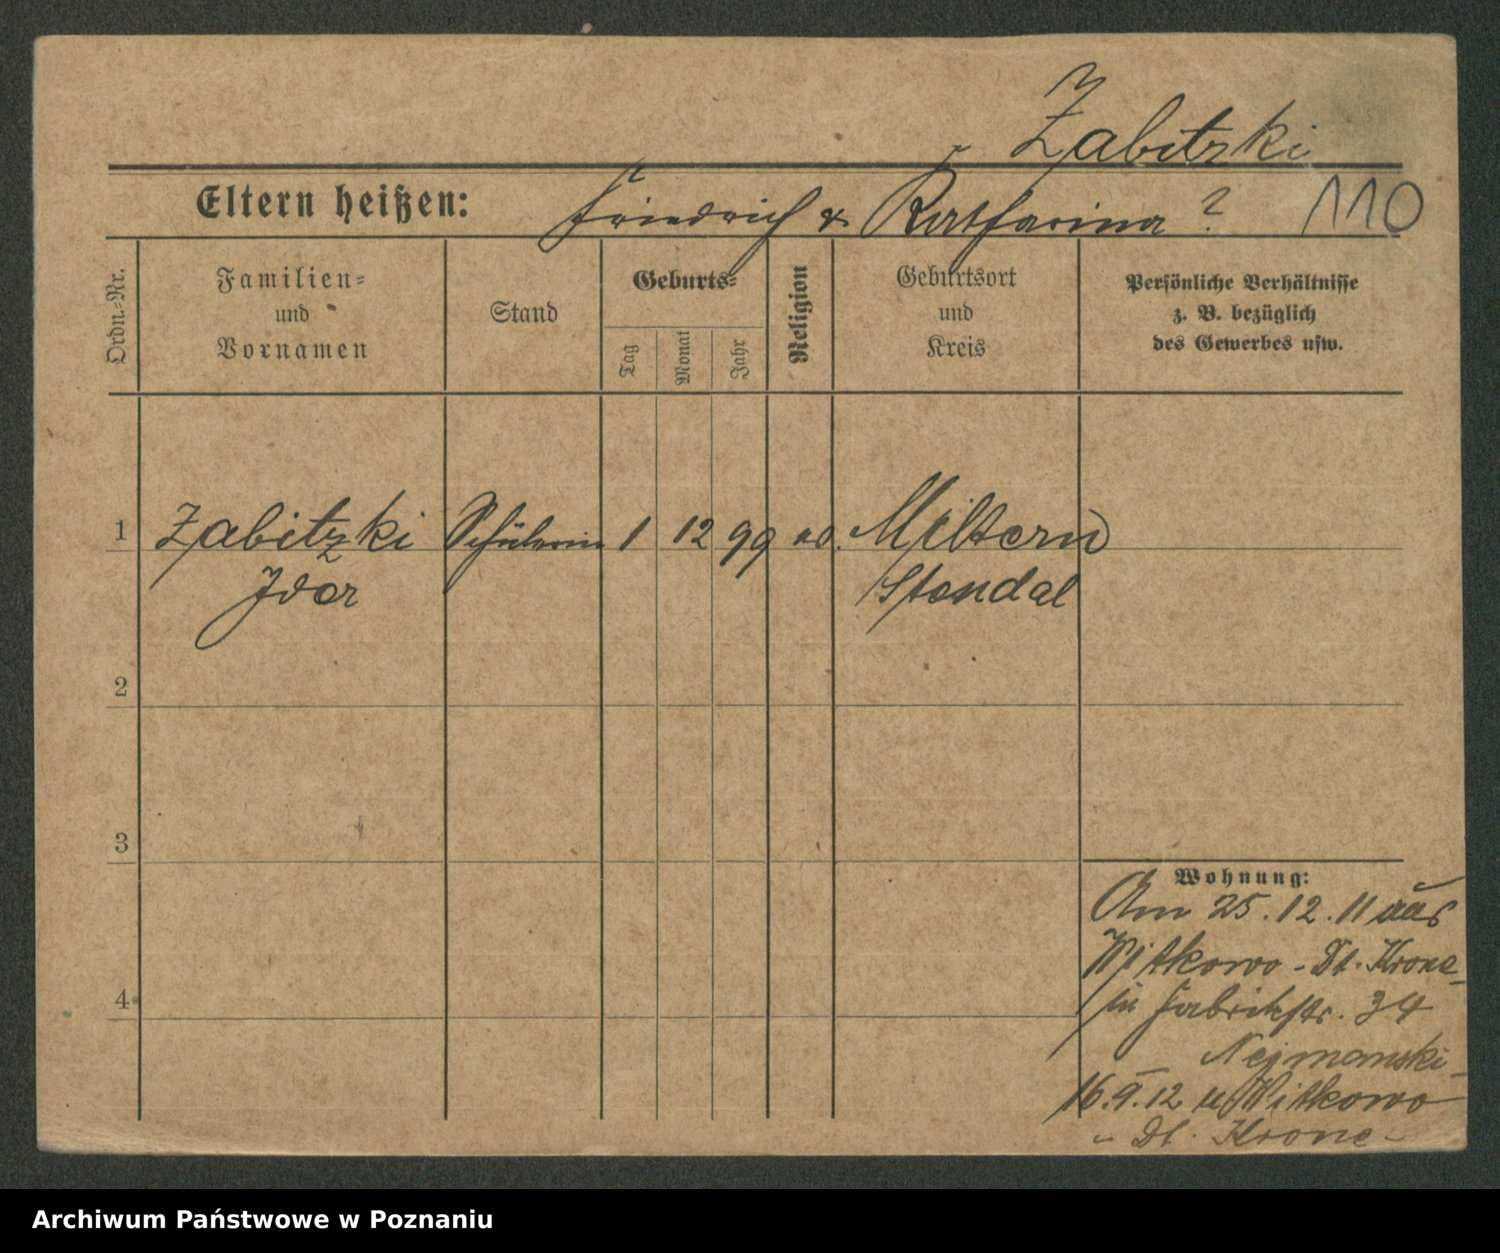 Zabitzki
Eltern heißen: Friedrich & Katharina ? 110
Ordn.-Nr.
Familien-
und
Vornamen
Stand
Geburts-
Tag
Monat
Jahr
Religion
Geburtsort
und
Kreis
Persönliche Verhältnisse
z. B. bezüglich
des Gewerbes usw.
1 Zabitzki Schülerin 1 12 99 Miltern
Ida Stendal
2
3
Wohnung:
Am 25.12.11 aus
Witkowo - Dt. Krone -
4
in Fabrikstr. 34
Nejmanski -
16.9.12 n Witkowo
- Dt. Krone -
Archiwum Państwowe w Poznaniu